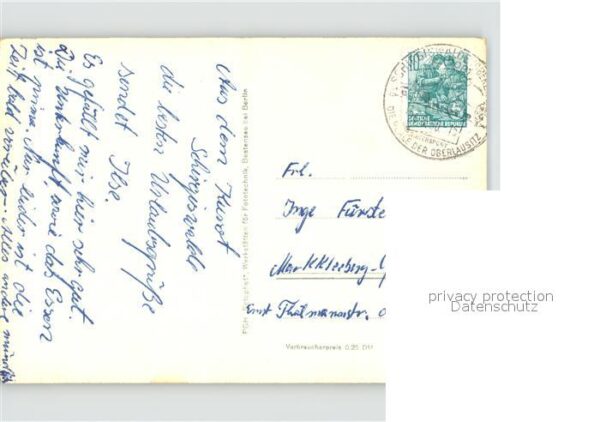 Aus dem Kurort
Schirgiswalde
die besten Urlaubsgrüße
sendet Ilse.
Es gefällt mir hier sehr gut.
Die Unterkunft, sowie das Essen
ist prima. Nur leider ist die
Zeit bald vorüber. Alles andere mündl.
10
DEUTSCHE
DEMOKRATISCHE REPUBLIK
DIE PERLE DER OBERLAUSITZ
Frl.
Inge
Markkleeberg-
Ernst Thälmannstr.
Werkstätten für Fototechnik, Bestensee bei Berlin
Verbraucherpreis 0,25 DM
privacy protection
Datenschutz